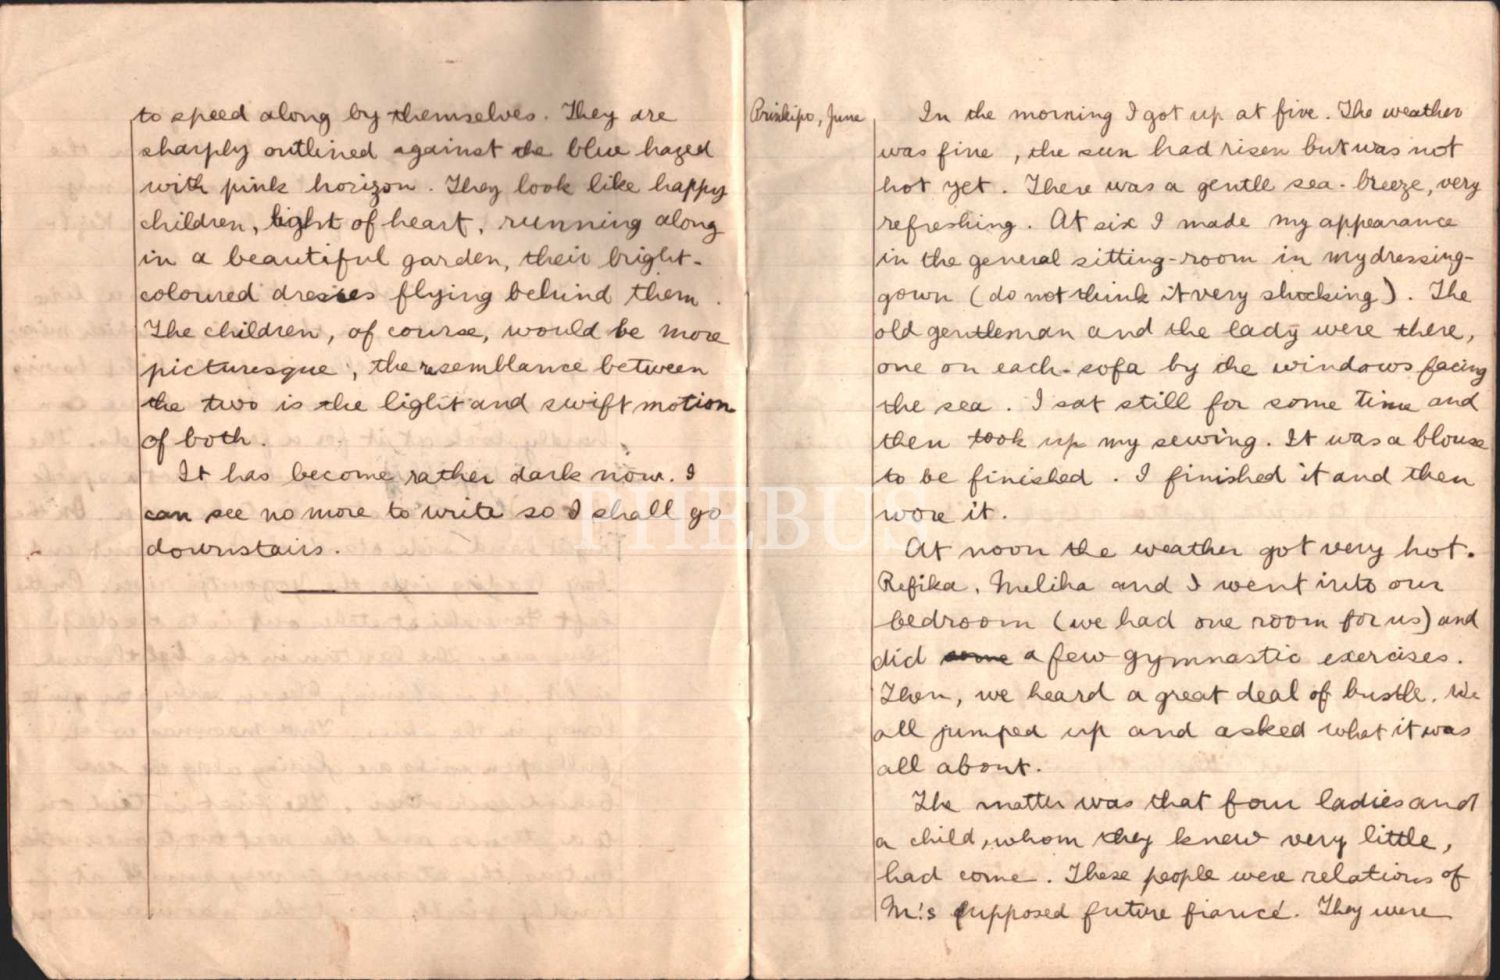 to speed along by themselves. They are
sharply outlined against the blue hazed
with pink horizon. They look like happy
children, light of heart, running along
in a beautiful garden, their bright-
coloured dresses flying behind them.
The children, of course, would be more
picturesque, the resemblance between
the two is the light and swift motion
of both.
It has become rather dark now. I
can see no more to write so I shall go
downstairs.
Prinkipo, June
In the morning I got up at five. The weather
was fine, the sun had risen but was not
hot yet. There was a gentle sea-breeze, very
refreshing. At six I made my appearance
in the general sitting-room in my dressing-
gown (do not think it very shocking). The
old gentleman and the lady were there,
one on each sofa by the windows facing
the sea. I sat still for some time and
then took up my sewing. It was a blouse
to be finished. I finished it and then
wore it.
At noon the weather got very hot.
Refika, Meliha and I went into our
bedroom (we had one room for us) and
did some a few gymnastic exercises.
Then, we heard a great deal of bustle. We
all jumped up and asked what it was
all about.
The matter was that four ladies and
a child, whom they knew very little,
had come. These people were relations of
M.'s supposed future fiancé. They were
PHEBUS